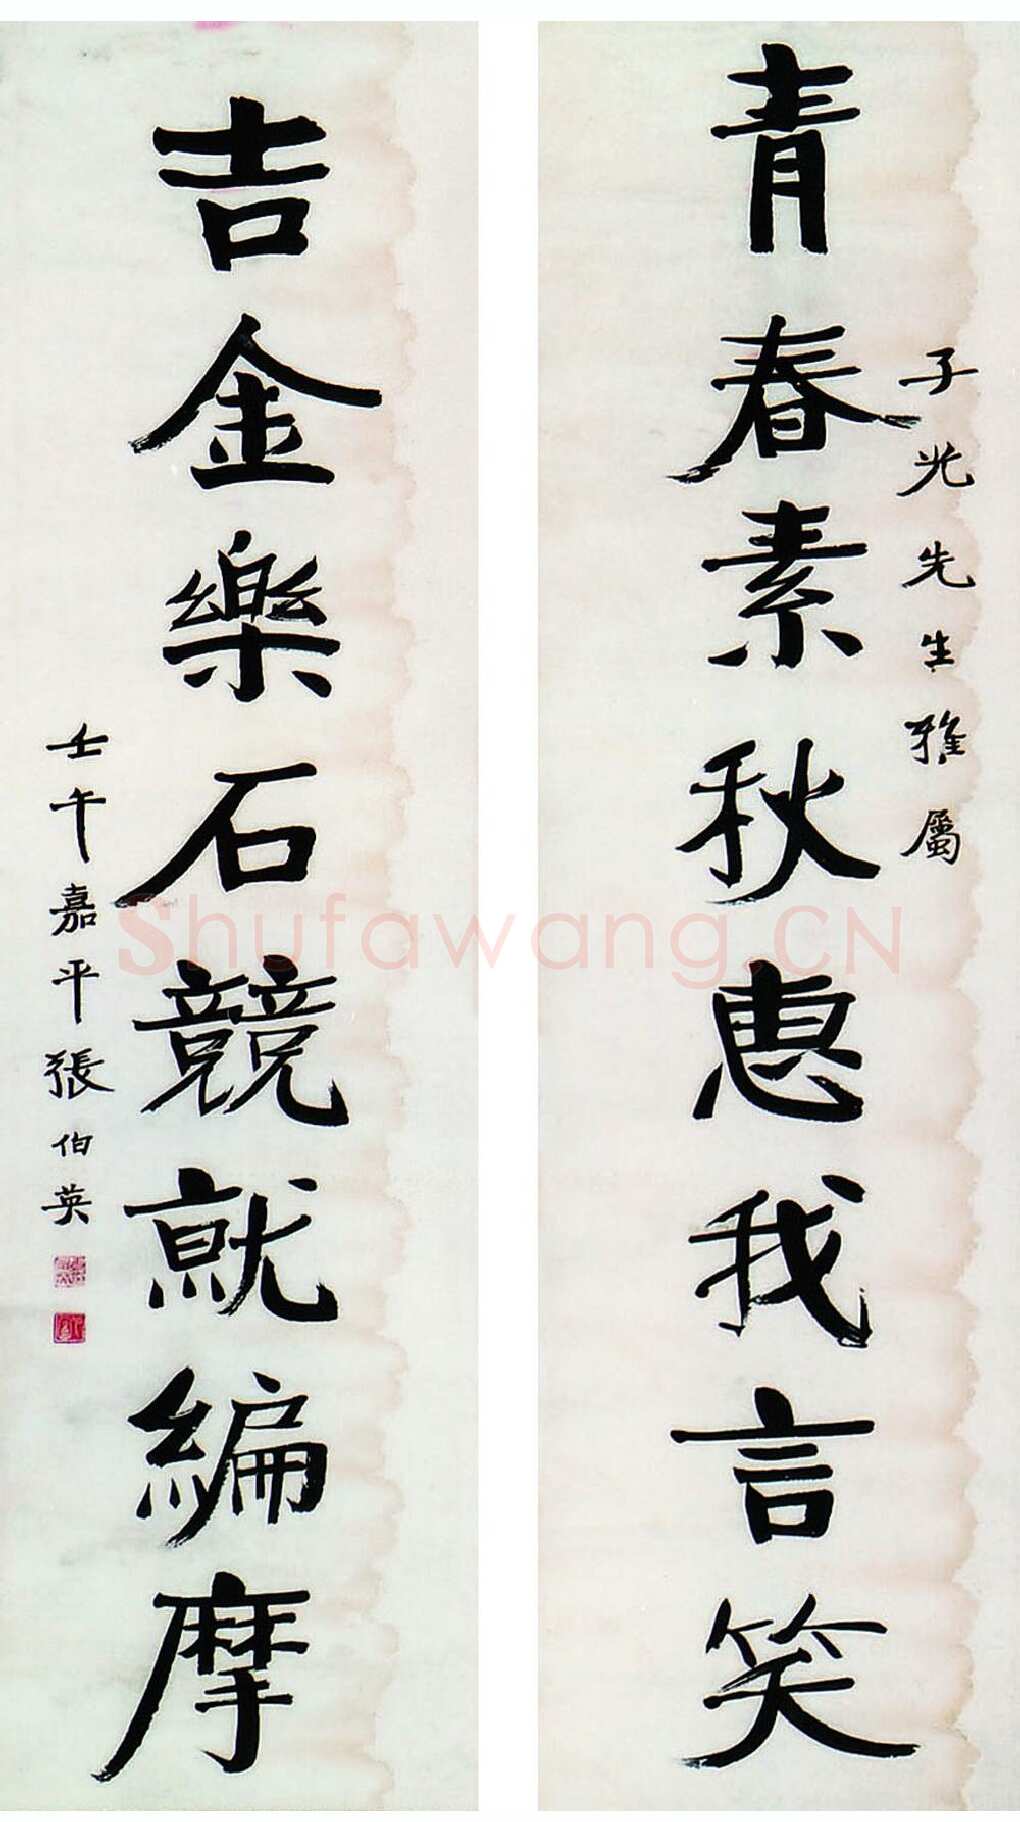 青春素秋惠我言笑
子光先生雅屬
吉金樂石競就編摩
壬午嘉平張伯英
Shufawang.CN